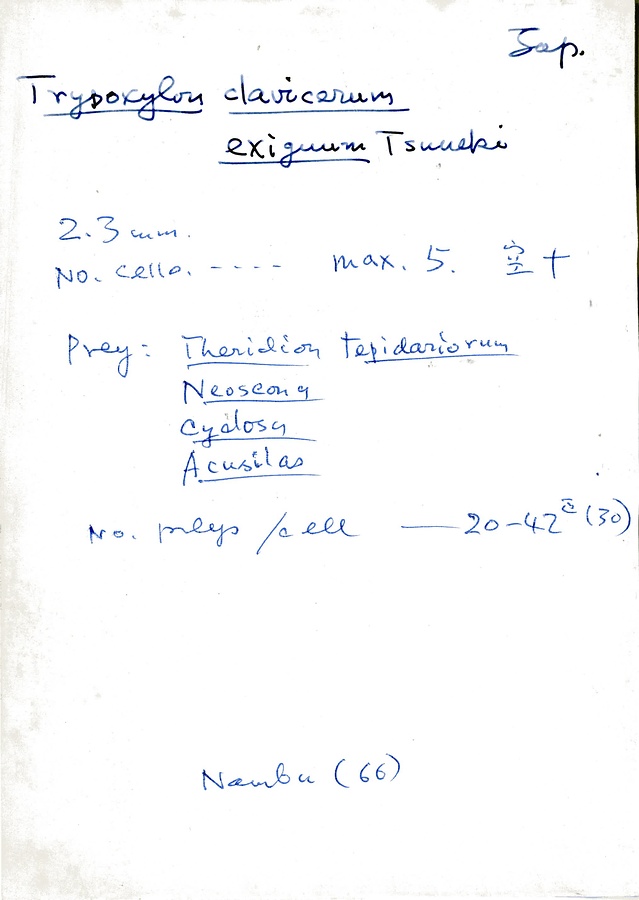 Jap.
Trypoxylon clavicerum
exiguum Tsuneki
2.3 mm.
No. cells. ---- max. 5. 空+
Prey: Theridion tepidariorum
Neoscona
Cyclosa
Acusilas
No. preys /cell — 20-42 (30)
Nambu (66)